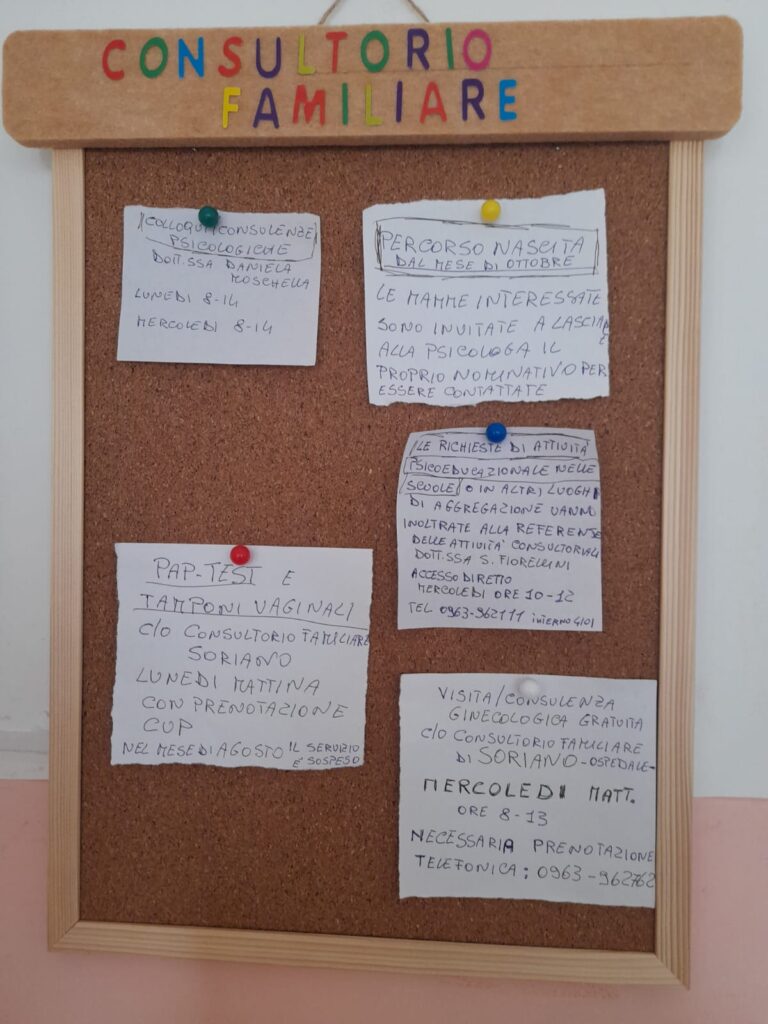 CONSULTORIO
FAMILIARE
COLLOQUI/CONSULENZE
PSICOLOGICHE
DOTT.SSA DANIELA
MOSCHELLA
LUNEDI 8-14
MERCOLEDI 8-14
PERCORSO NASCITA
DAL MESE DI OTTOBRE
LE MAMME INTERESSATE
SONO INVITATE A LASCIARE
ALLA PSICOLOGA IL
PROPRIO NOMINATIVO PER
ESSERE CONTATTATE
LE RICHIESTE DI ATTIVITA'
PSICOEDUCAZIONALE NELLE
SCUOLE O IN ALTRI LUOGHI
DI AGGREGAZIONE VANNO
INOLTRATE ALLA REFERENTE
DELLE ATTIVITA' CONSULTORIALI
DOTT.SSA S. FIORELLINI
ACCESSO DIRETTO
MERCOLEDI ORE 10-12
TEL 0963-962111 INTERNO 4101
PAP-TEST E
TAMPONI VAGINALI
C/O CONSULTORIO FAMILIARE
SORIANO
LUNEDI MATTINA
CON PRENOTAZIONE
CUP
NEL MESE DI AGOSTO IL SERVIZIO
E' SOSPESO
VISITA/CONSULENZA
GINECOLOGICA GRATUITA
C/O CONSULTORIO FAMILIARE
DI SORIANO-OSPEDALE-
MERCOLEDI MATT.
ORE 8-13
NECESSARIA PRENOTAZIONE
TELEFONICA: 0963-962762